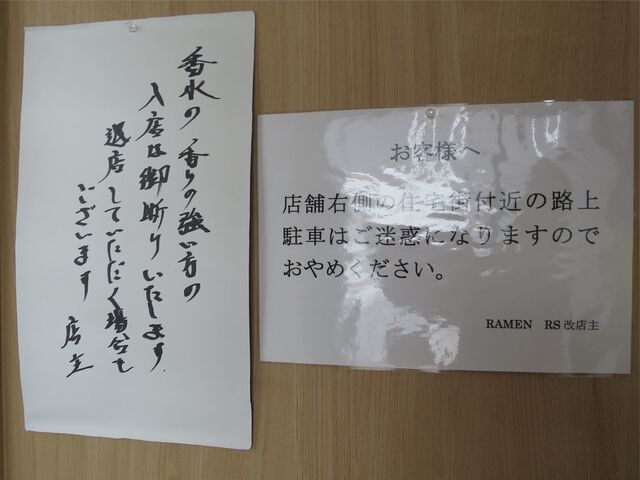 香水の香りの強い方の
入店は御断りいたします
退店していただく場合も
ございます
店主
お客様へ
店舗右側の住宅街付近の路上
駐車はご迷惑になりますので
おやめください。
RAMEN RS改店主